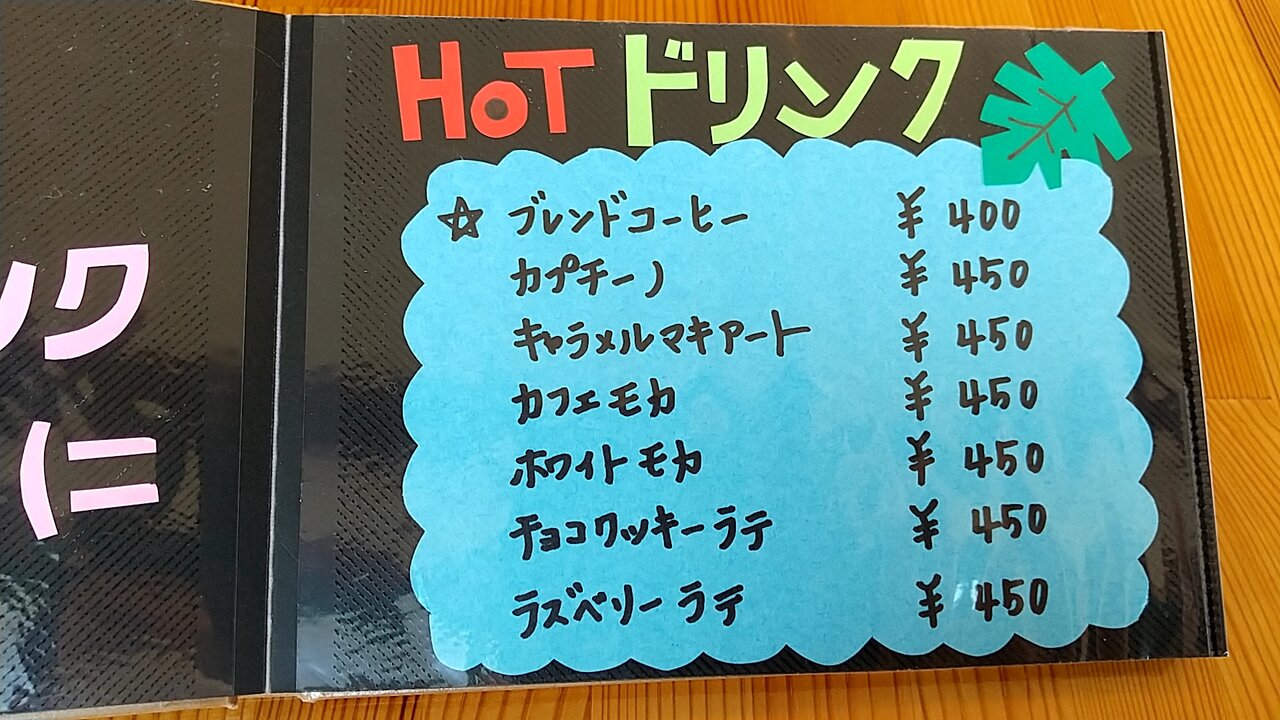 HoT ドリンク
☆ ブレンドコーヒー ¥ 400
カプチーノ ¥ 450
キャラメルマキアート ¥ 450
カフェモカ ¥ 450
ホワイトモカ ¥ 450
チョコクッキーラテ ¥ 450
ラズベリーラテ ¥ 450
ンク
(ニ